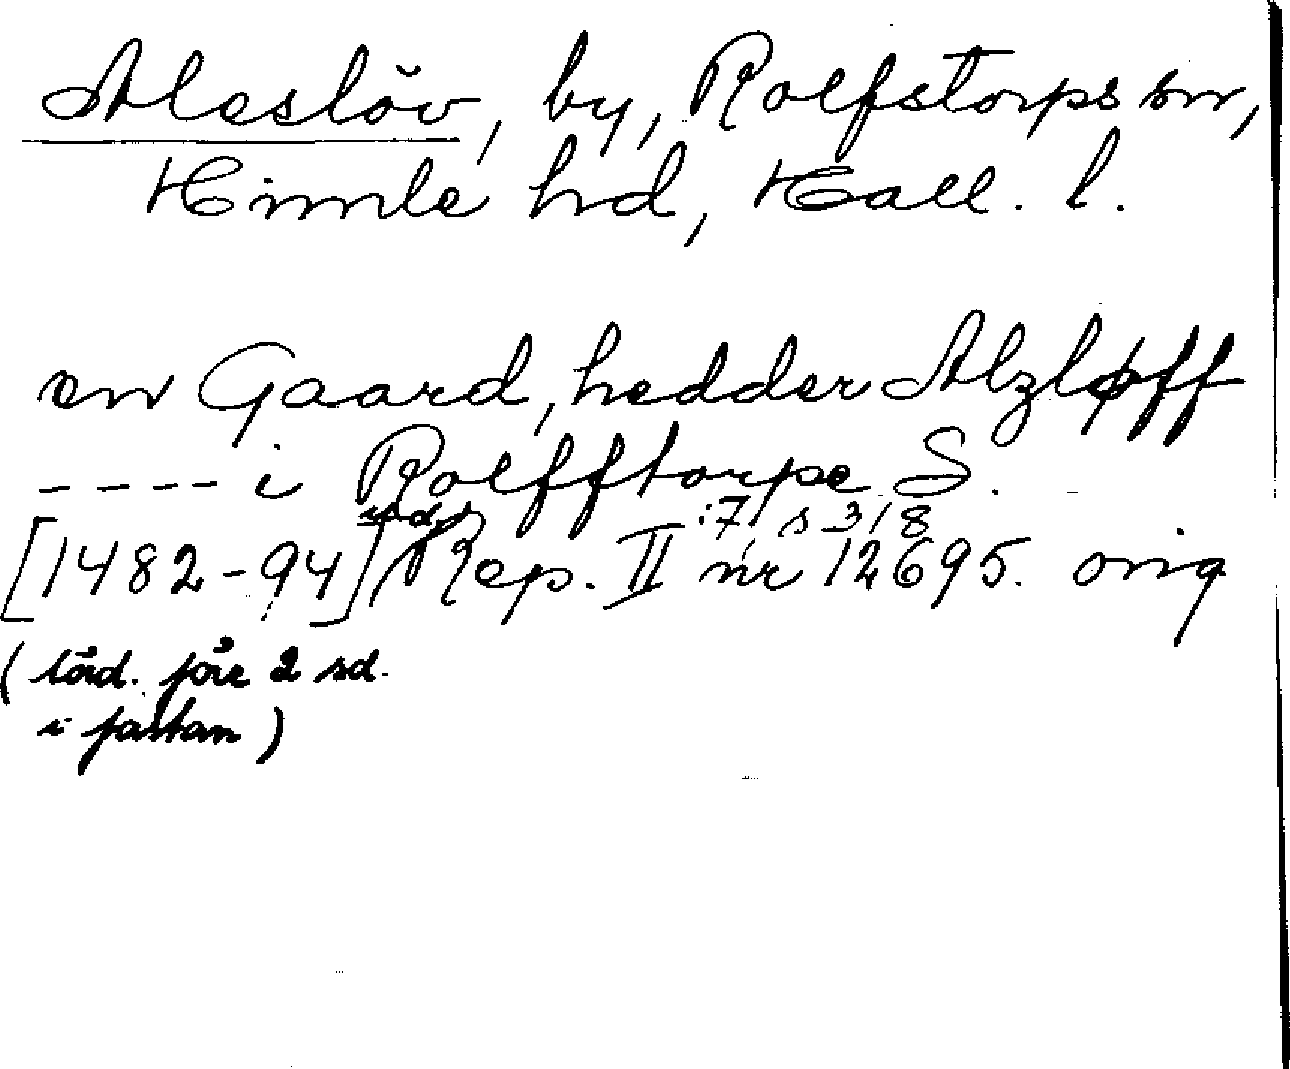 Aleslöv, by, Rolfstorps sn,
Himle hd, Hall. l.
en Gaard, hedder Alzløff
---- i Rolfftorpe S.
[1482-94] Rep. II :7, s 318 nr 12695. orig
(lörd. före 2 sd.
i fastan)